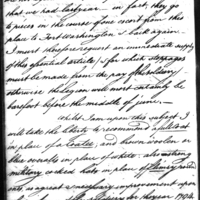 that we had last year — in fact, they go
to pieces in the course of one escort from this
place to Fort Washington & back again.
I must therefore request an immediate supply
of this essential article; (for which stoppages
must be made from the pay of the soldiery
otherwise the legion will most certainly be
barefoot before the middle of June. —
Whilst I am upon this subject I
will take the liberty to recommend
in place of a Coatee, and brown woolen or
overalls in place of white, also strong
military cocked hats in place of
hats, as a great & necessary improvement upon
the year 1794